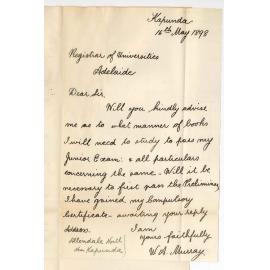 Kapunda
16th May 1898
Registrar of Universities
Adelaide
Dear Sir
Will you kindly advise
me as to what manner of books
I will need to study to pass my
Junior Exam: & all particulars
concerning the same - Will it be
necessary to first pass the Preliminary
I have gained my Compulsory
Certificate - awaiting your reply
I am
Yours faithfully
W. A. Murray
Address.
Allendale North
Kapunda